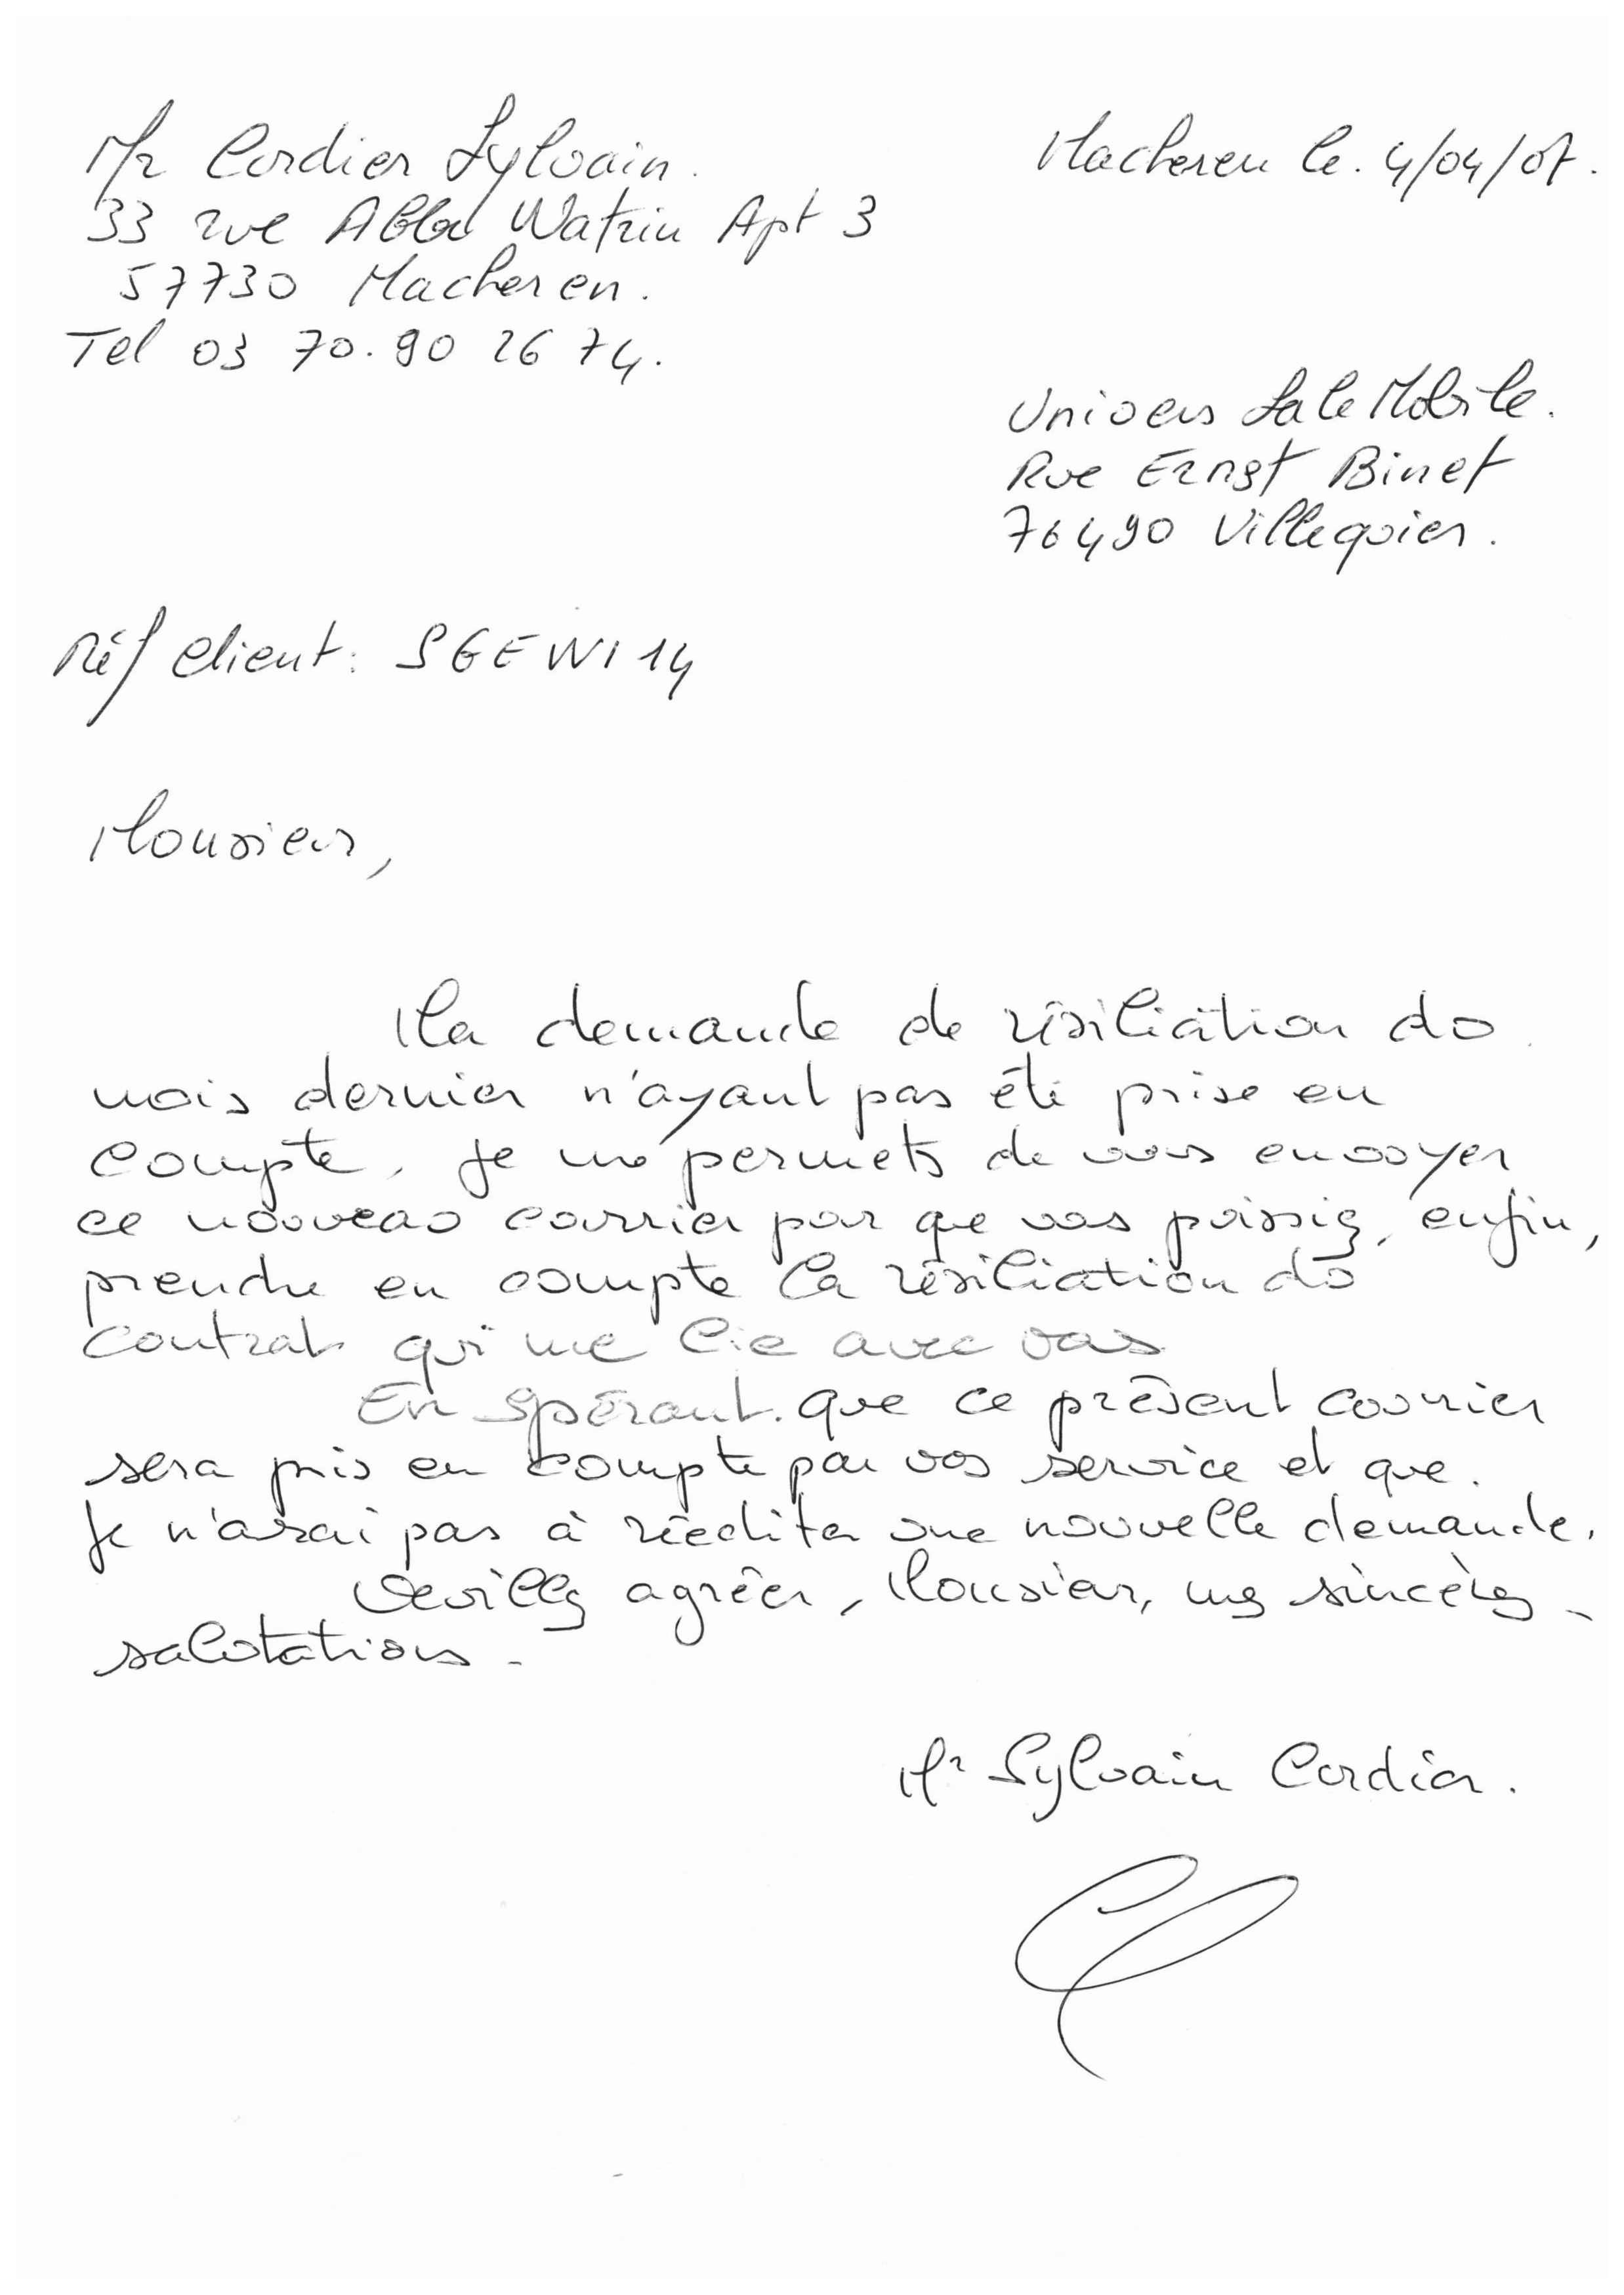 Mr Cordier Sylvain.
33 rue Abbé Watrin Apt 3
57730 Macheren.
Tel 03 70.90 26 74.
Macheren le. 4/04/07.
Univers Sale Mobile.
Rue Ernst Binet
76490 Villequier.
Réf client: SGEWI14
Monsieur,
Ma demande de résiliation du
mois dernier n'ayant pas été prise en
compte, je me permets de vous envoyer
ce nouveau courrier pour que vous puissiez, enfin,
prendre en compte la résiliation du
contrat qui me lie avec vous
En espérant que ce présent courrier
sera pris en compte par vos service et que
je n'aurai pas à rééditer une nouvelle demande.
Veuillez agréer, Monsieur, mes sincères
salutations.
Mr Sylvain Cordier.